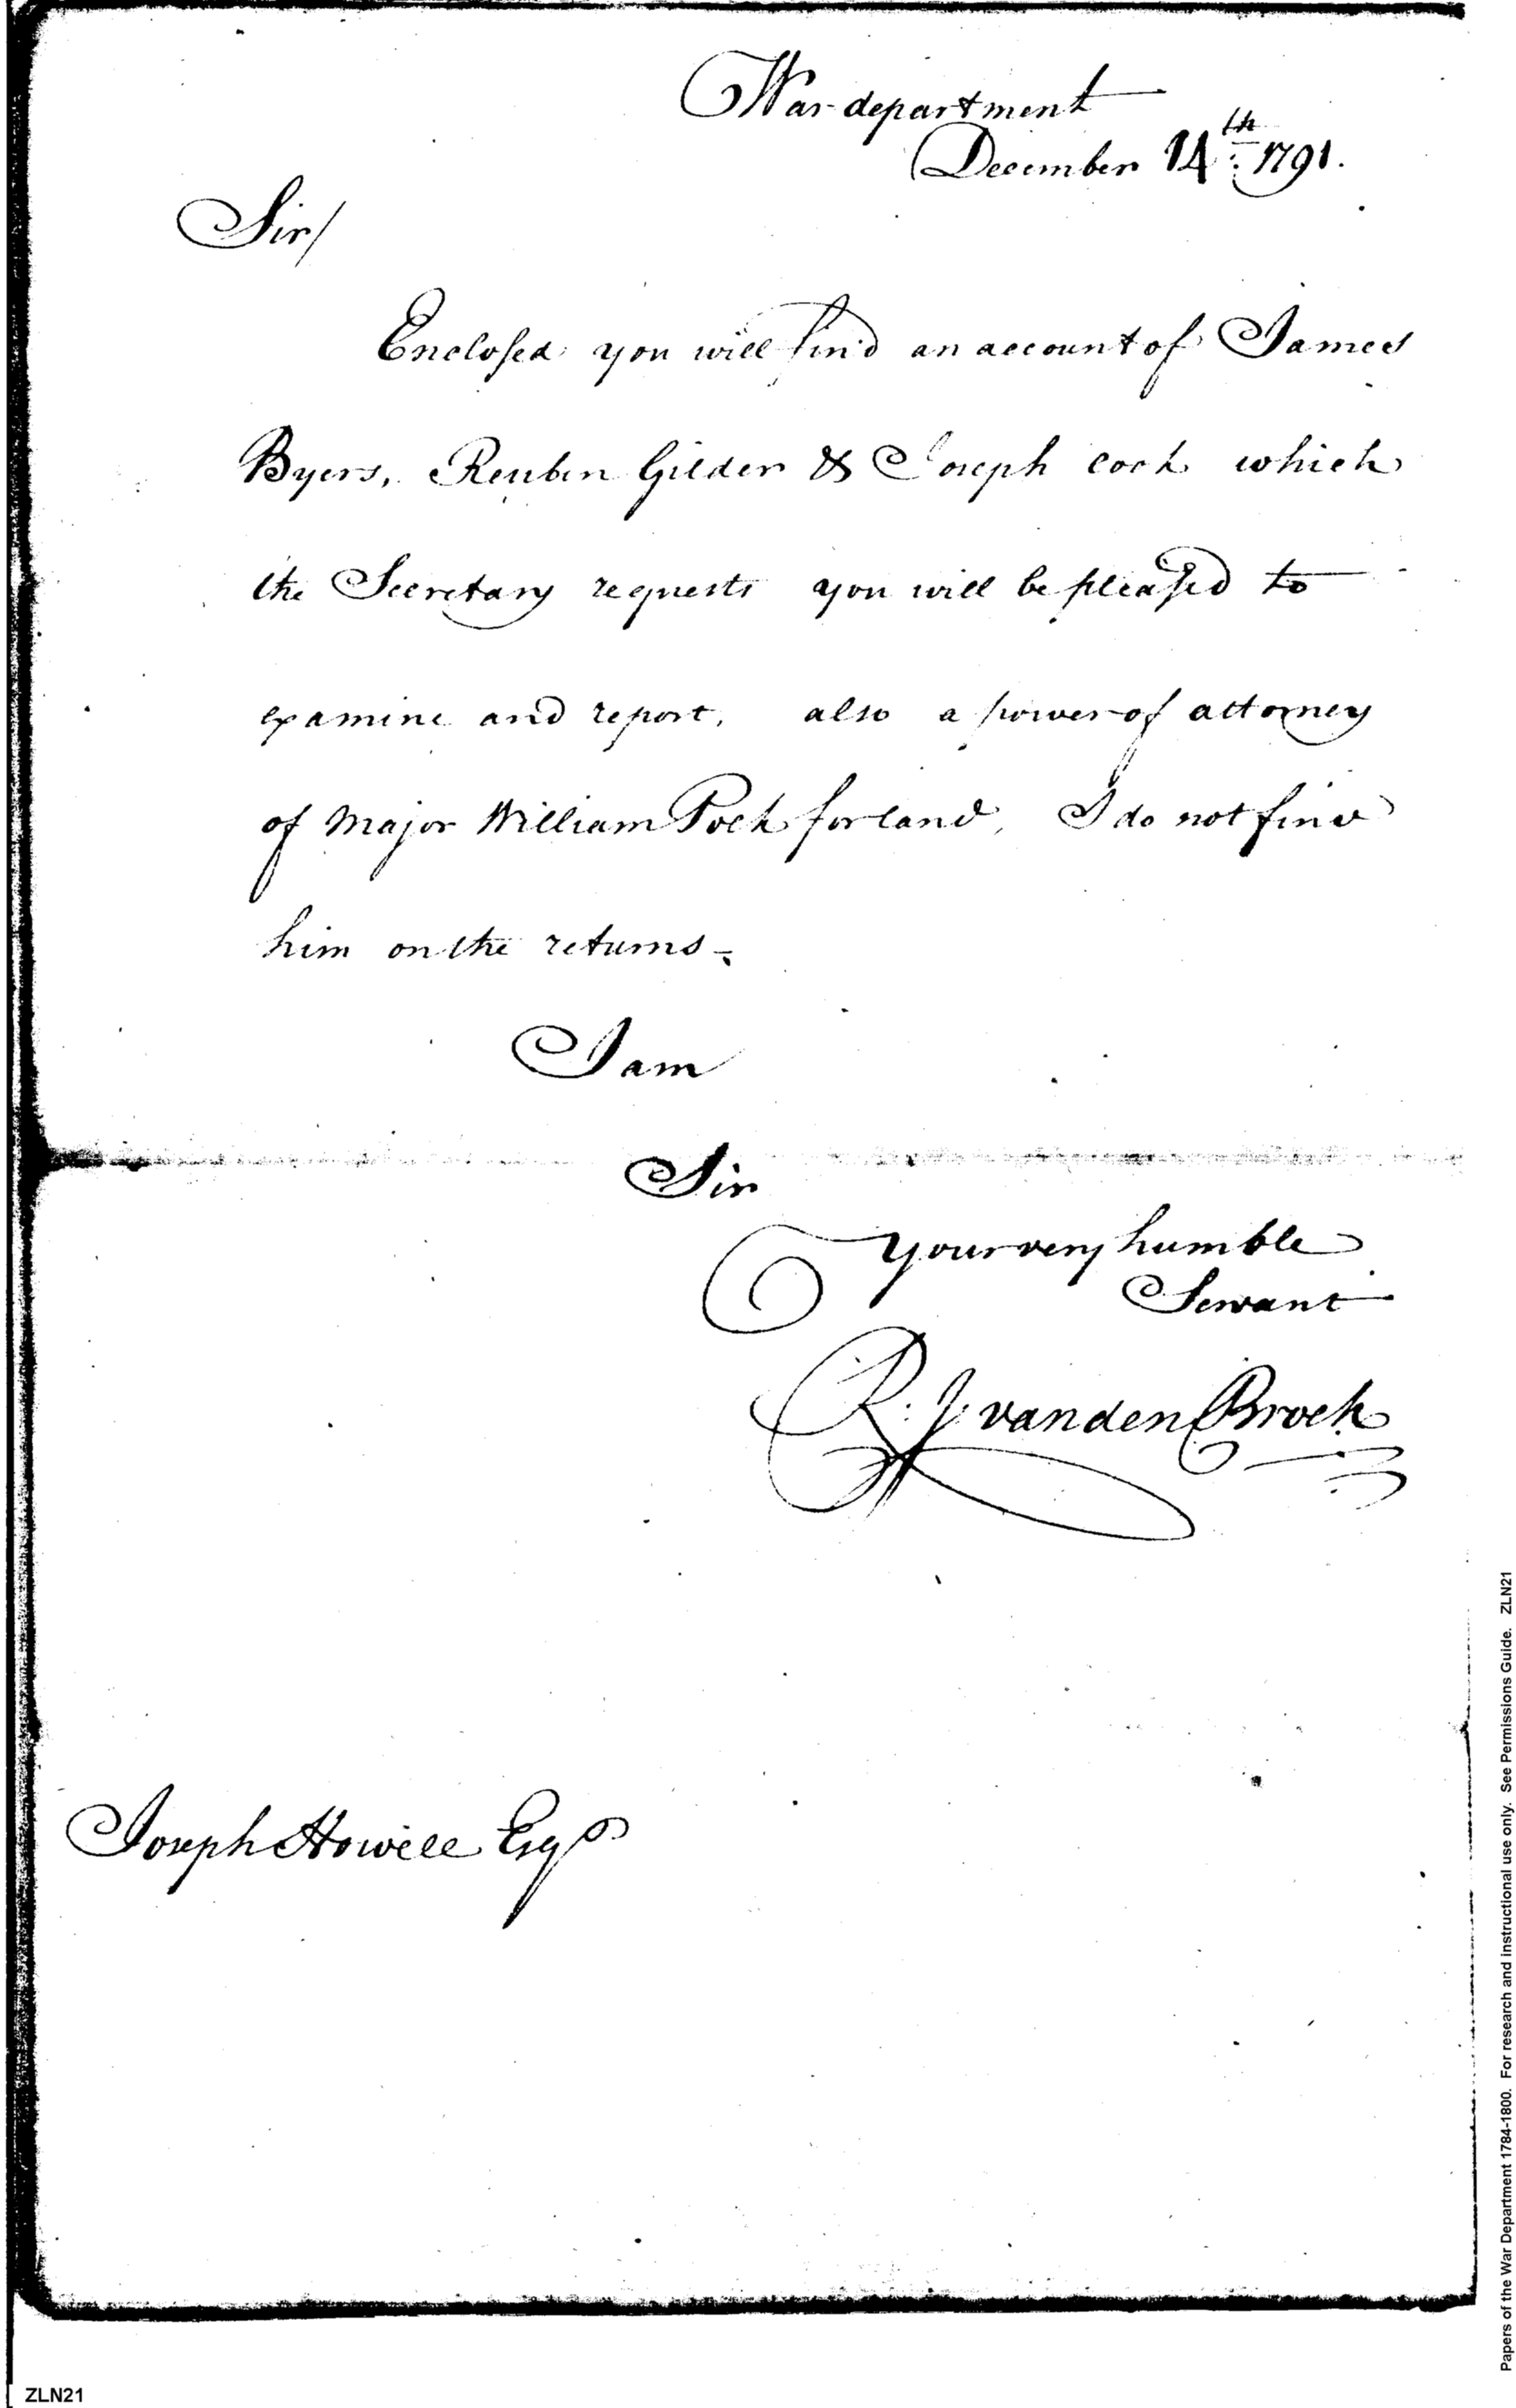 War department
December 14th. 1791.
Sir/
Enclosed you will find an account of James
Byers, Reuben Gilder & Joseph Cook which
the Secretary requests you will be pleased to
examine and report, also a power of attorney
of Major William Polk for land, I do not find
him on the returns -
I am
Sir
Your very humble
Servant
R: J. vanden Broek
Joseph Howell Esqr
Papers of the War Department 1784-1800. For research and instructional use only. See Permissions Guide. ZLN21
ZLN21